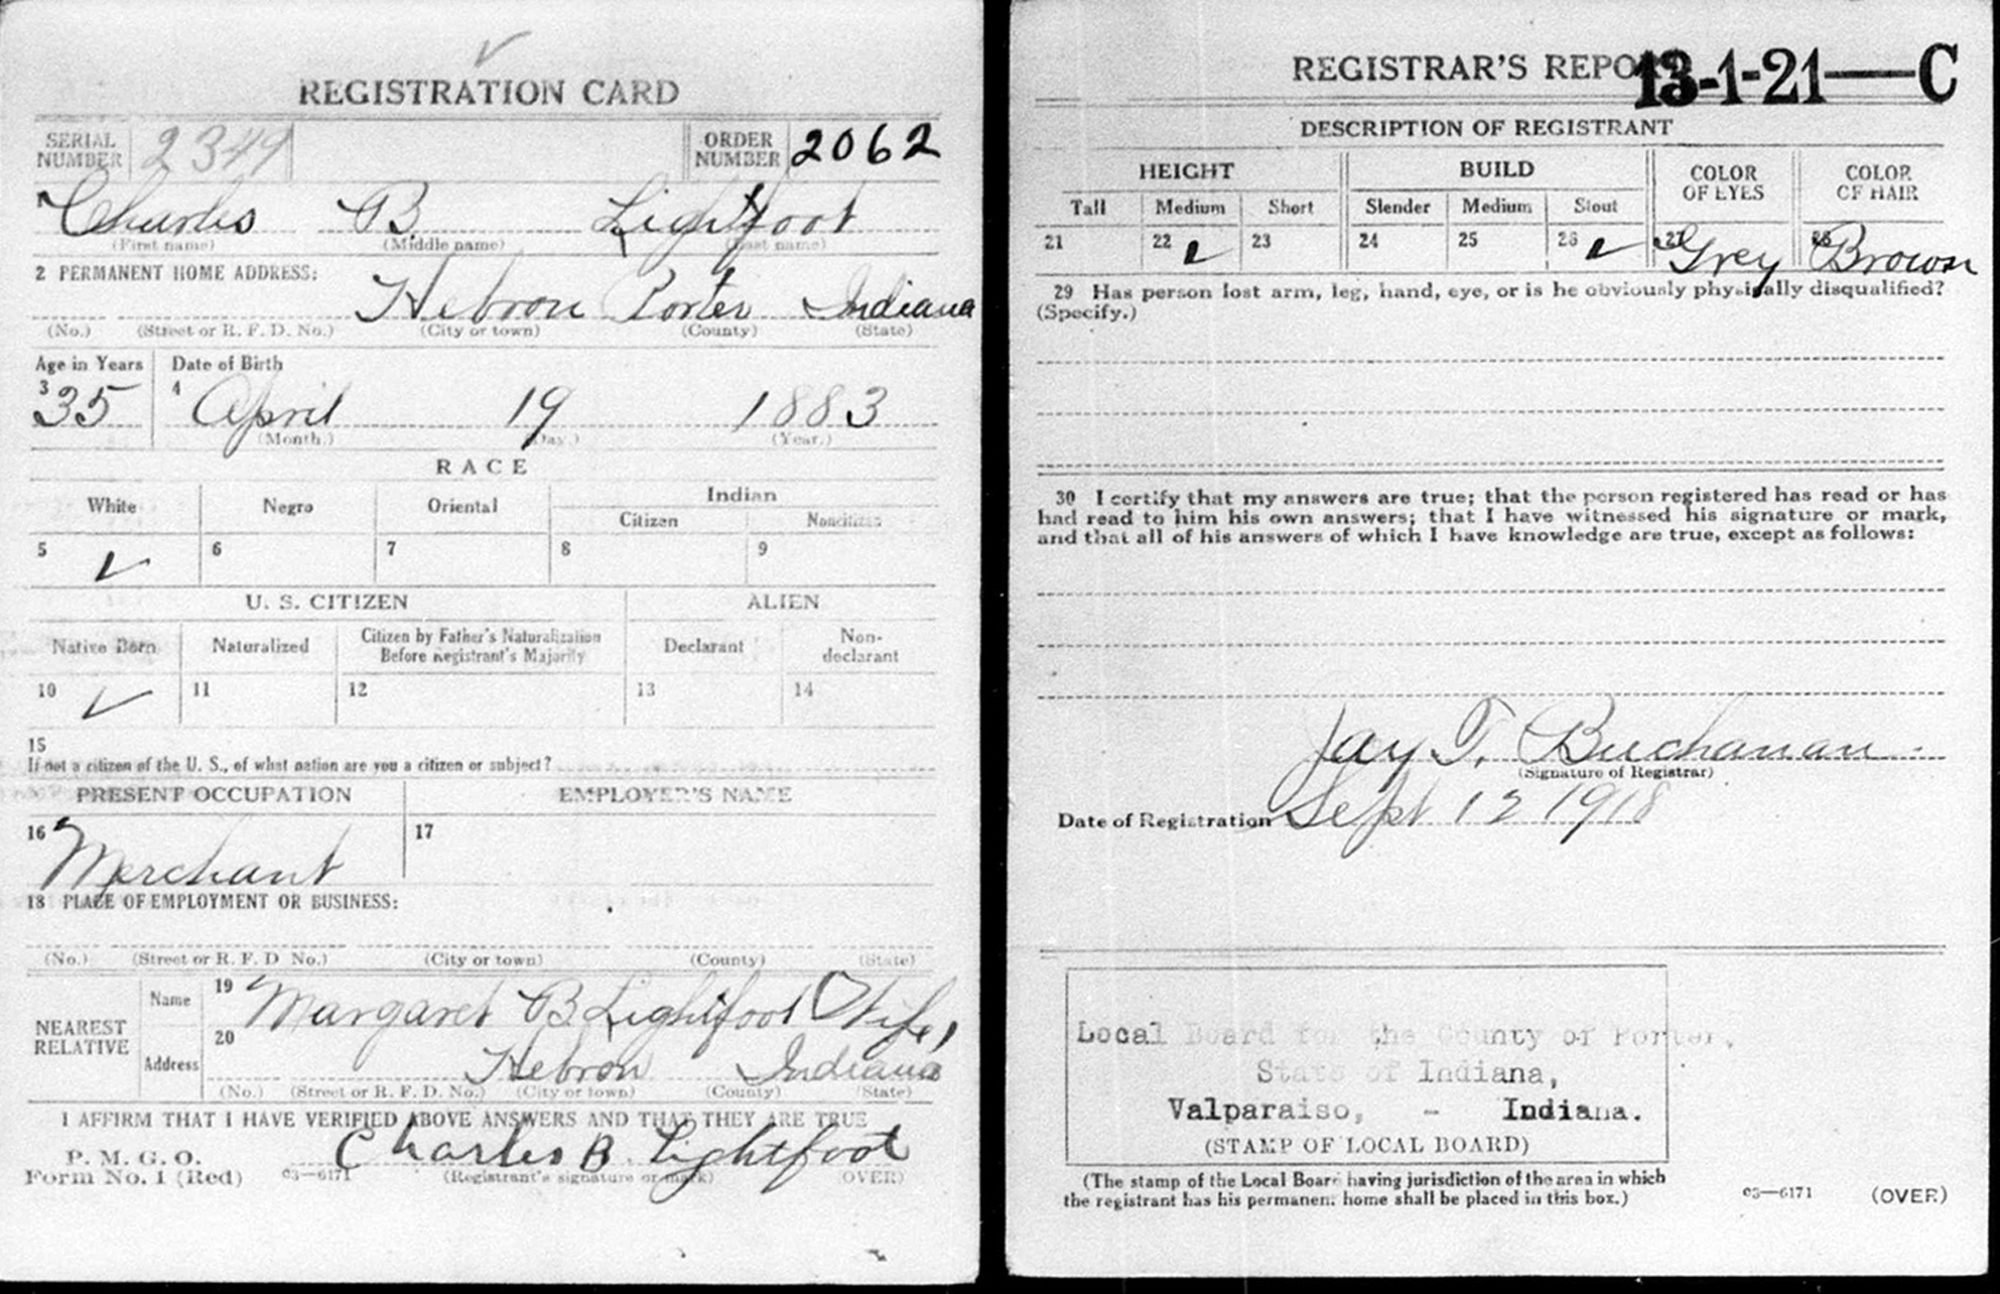 REGISTRATION CARD
SERIAL NUMBER 2349 ORDER NUMBER 2062
Charles B. Lightfoot
(First name) (Middle name) (Last name)
2 PERMANENT HOME ADDRESS:
Hebron Porter Indiana
(No.) (Street or R. F. D. No.) (City or town) (County) (State)
Age in Years Date of Birth
3 35 4 April 19 1883
(Month.) (Day.) (Year.)
RACE
White Negro Oriental Indian
Citizen Noncitizen
5 ✓ 6 7 8 9
U. S. CITIZEN ALIEN
Native Born Naturalized Citizen by Father's Naturalization Before Registrant's Majority Declarant Non-declarant
10 ✓ 11 12 13 14
15
If not a citizen of the U. S., of what nation are you a citizen or subject?
PRESENT OCCUPATION EMPLOYER'S NAME
16 Merchant 17
18 PLACE OF EMPLOYMENT OR BUSINESS:
(No.) (Street or R. F. D No.) (City or town) (County) (State)
NEAREST RELATIVE
Name 19 Margaret B Lightfoot Wife,
Address 20 Hebron Indiana
(No.) (Street or R. F. D. No.) (City or town) (County) (State)
I AFFIRM THAT I HAVE VERIFIED ABOVE ANSWERS AND THAT THEY ARE TRUE
P. M. G. O.
Form No. 1 (Red) 03—6171 Charles B. Lightfoot
(Registrant's signature or mark) (OVER)
REGISTRAR'S REPORT 13-1-21—C
DESCRIPTION OF REGISTRANT
HEIGHT BUILD COLOR OF EYES COLOR OF HAIR
Tall Medium Short Slender Medium Stout
21 22 ✓ 23 24 25 26 ✓ 27 Grey 28 Brown
29 Has person lost arm, leg, hand, eye, or is he obviously physically disqualified?
(Specify.)
30 I certify that my answers are true; that the person registered has read or has
had read to him his own answers; that I have witnessed his signature or mark,
and that all of his answers of which I have knowledge are true, except as follows:
Jay T. Buchanan
(Signature of Registrar)
Date of Registration Sept 12 1918
Local Board for the County of Porter,
State of Indiana,
Valparaiso, - Indiana.
(STAMP OF LOCAL BOARD)
(The stamp of the Local Board having jurisdiction of the area in which
the registrant has his permanent home shall be placed in this box.)
03—6171 (OVER)